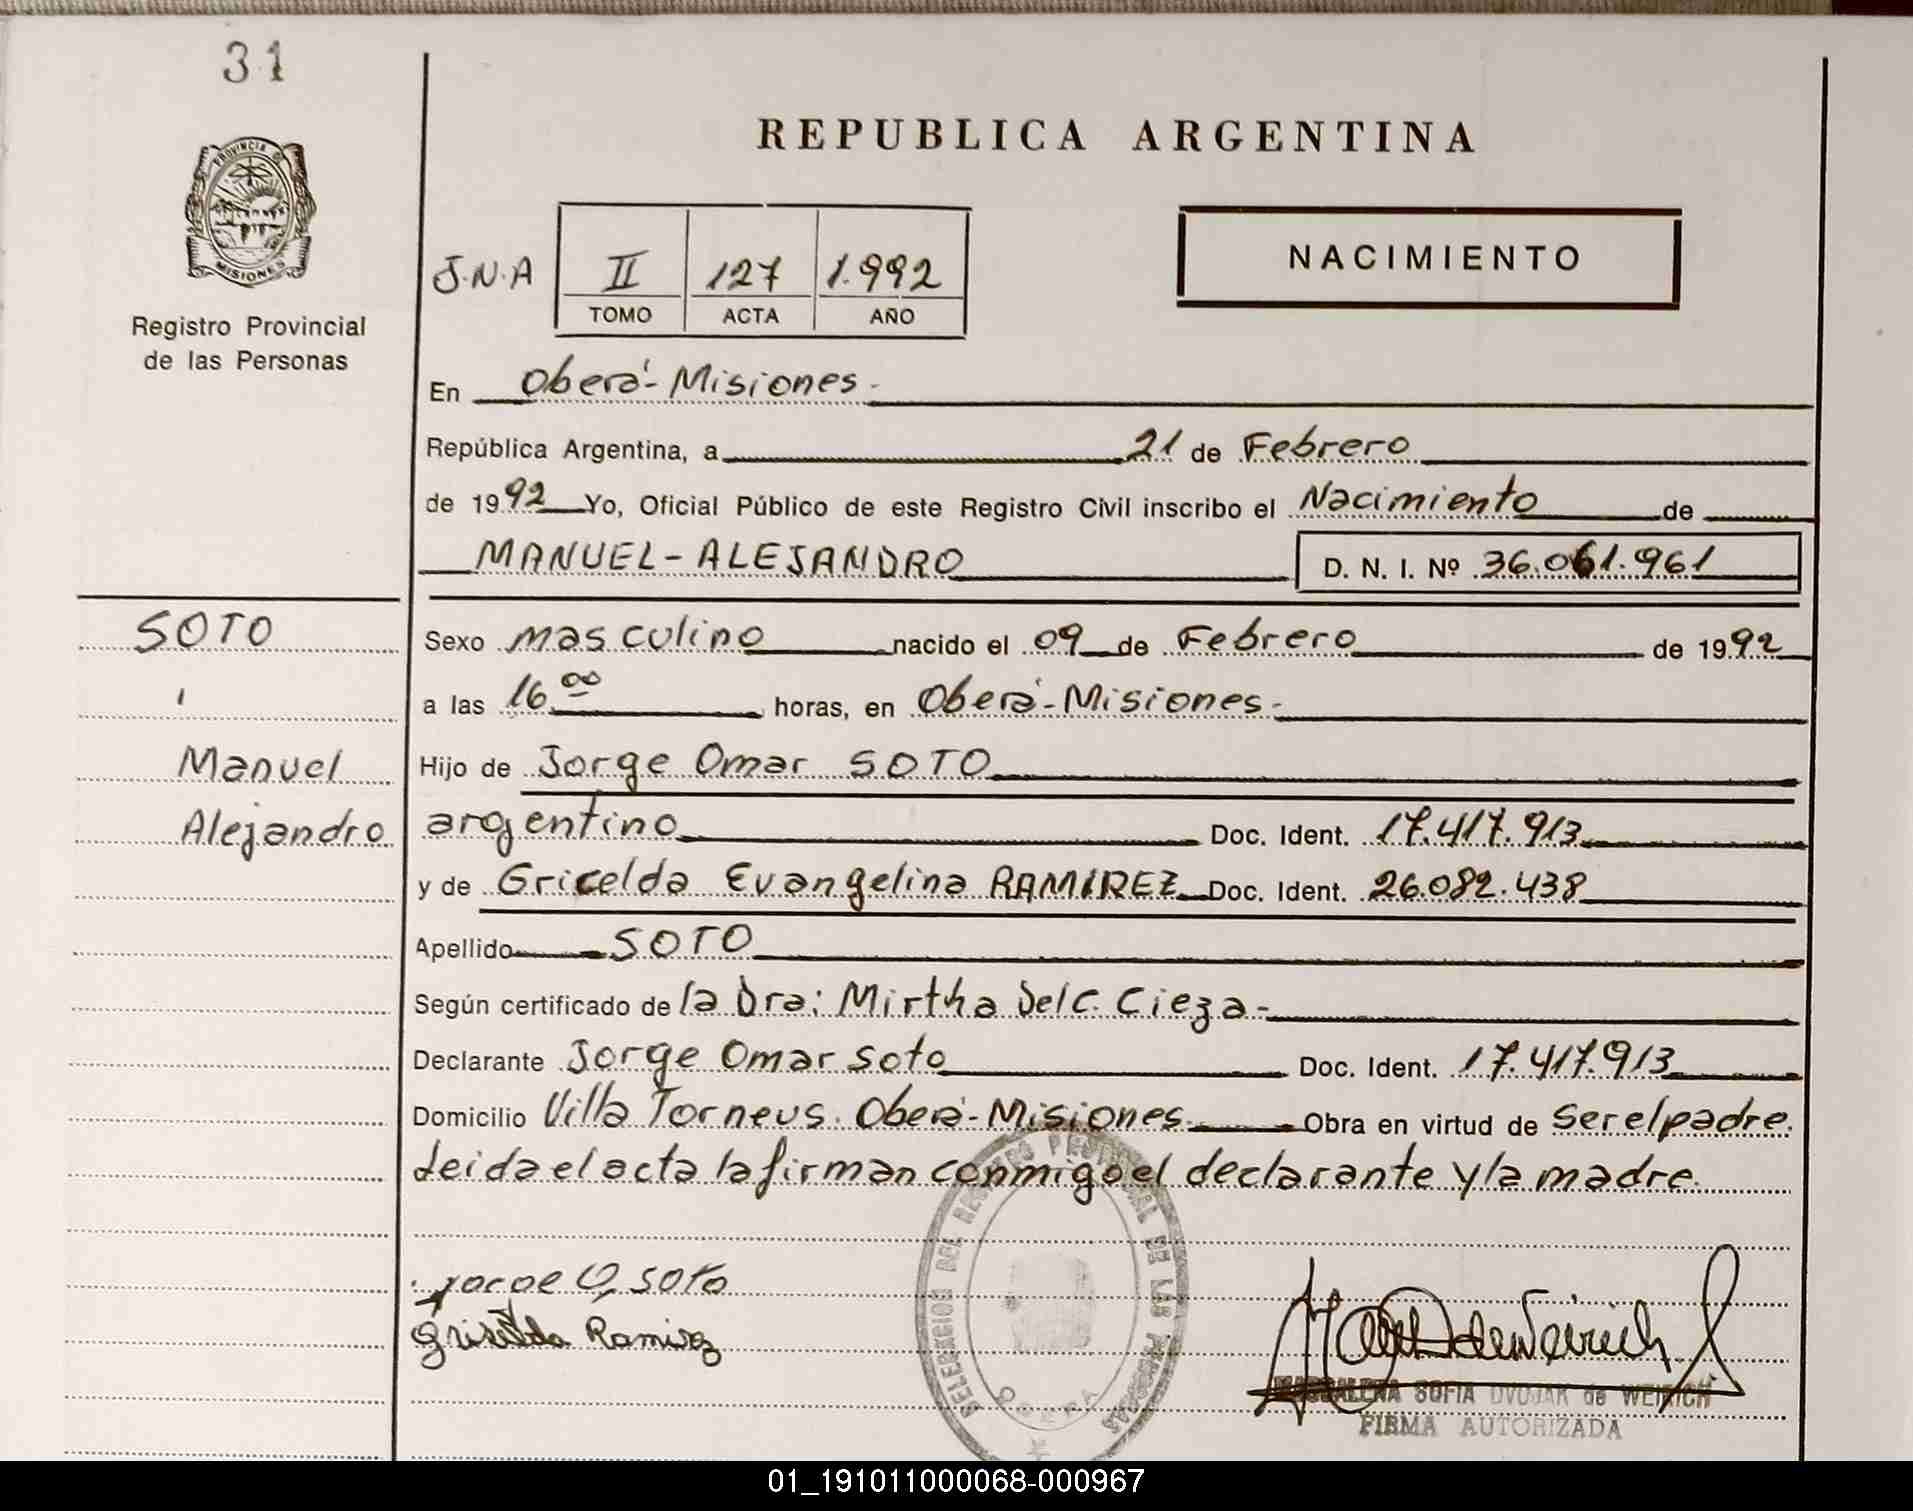 31
REPUBLICA ARGENTINA
PROVINCIA DE
MISIONES
Registro Provincial
de las Personas
J.N.A II 127 1.992
TOMO ACTA AÑO
NACIMIENTO
En Oberá-Misiones-
República Argentina, a 21 de Febrero
de 1992 Yo, Oficial Público de este Registro Civil inscribo el Nacimiento de
MANUEL-ALEJANDRO D. N. I. Nº 36.061.961
SOTO
Manuel
Alejandro
Sexo masculino nacido el 09 de Febrero de 1992
a las 16 00 horas, en Oberá-Misiones-
Hijo de Jorge Omar SOTO
argentino Doc. Ident. 17.417.913
y de Gricelda Evangelina RAMIREZ Doc. Ident. 26.082.438
Apellido SOTO
Según certificado de la Dra: Mirtha Del C. Cieza-
Declarante Jorge Omar Soto Doc. Ident. 17.417.913
Domicilio Villa Torneus. Oberá-Misiones- Obra en virtud de Ser el padre.
Leida el acta la firman conmigo el declarante y la madre.
DELEGACION DEL REGISTRO PROVINCIAL DE LAS PERSONAS
OBERA
Jorge O. Soto
Griselda Ramirez
MAGDALENA SOFIA DVOJAK de WEIRICH
FIRMA AUTORIZADA
01_191011000068-000967